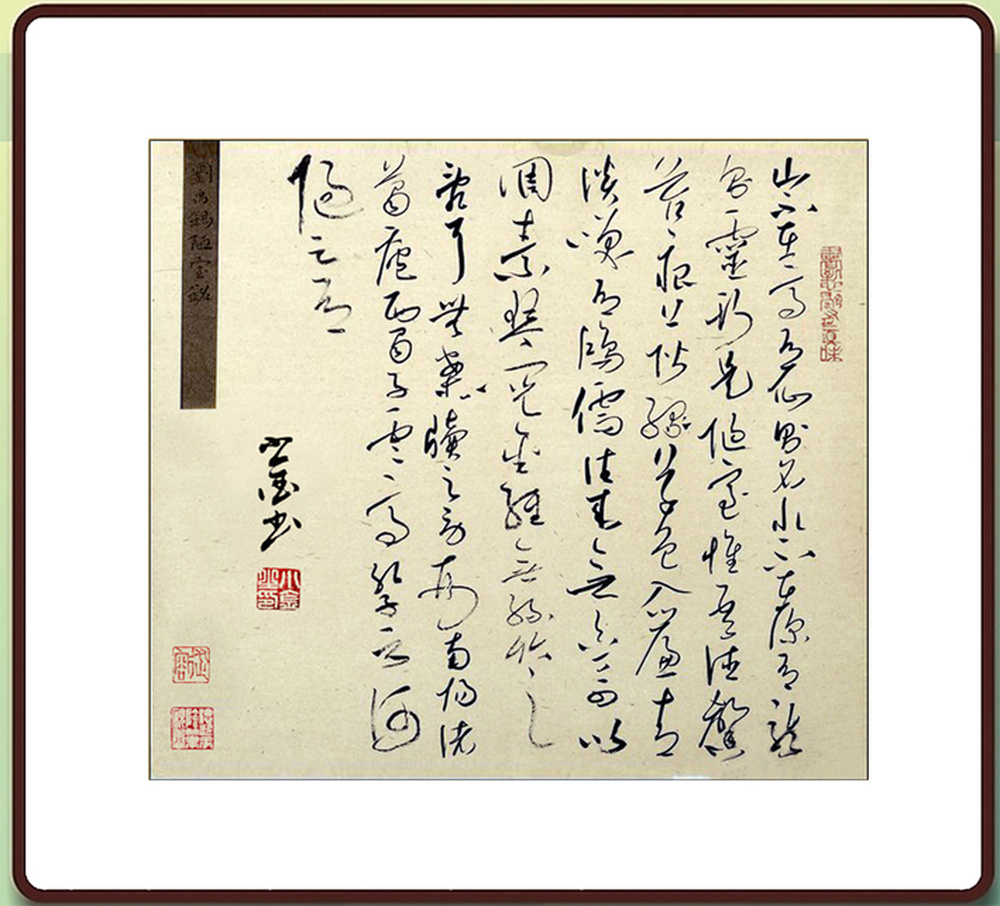 山不在高有仙則名水不在深有龍
則靈斯是陋室惟吾德馨
苔痕上階緑草色入簾青
談笑有鴻儒往来無白丁可以
調素琴閱金經無絲竹之
亂耳無案牘之勞形南陽諸
葛廬西蜀子雲亭孔子云何
陋之有
劉禹錫陋室銘